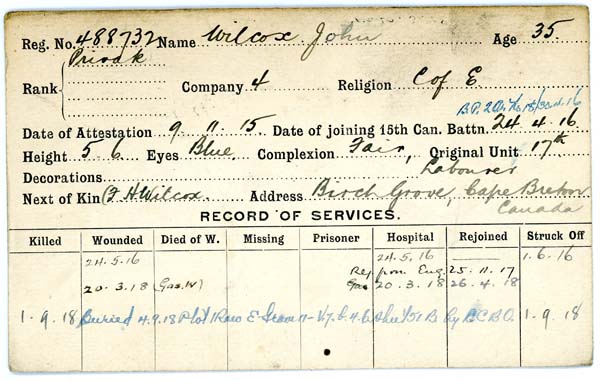 Reg. No. 488732 Name Wilcox John Age 35
Rank Private Company 4 Religion C of E
Date of Attestation 9. 11. 15. Date of joining 15th Can. Battn. 24.4.16
Height 5 6 Eyes Blue Complexion Fair, Original Unit 17th
Decorations Labourer
Next of Kin (F H Wilcox. Address Birch Grove, Cape Breton
Canada
RECORD OF SERVICES.
Killed Wounded Died of W. Missing Prisoner Hospital Rejoined Struck Off
24.5.16 24.5.16 1.6.16
Rej from Eng. 25.11.17
20.3.18 Gas(W) Gas 20.3.18 26.4.18
1.9.18 Buried 4.9.18 Plot 1 Row E Sheet 51B by B.C.B.O. 1.9.18